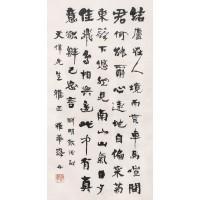 結廬在人境而無車馬喧問
君何能爾心遠地自偏采菊
東籬下悠然見南山山氣日夕
佳飛鳥相與還此中有真
意欲辨已忘言
先生雅正